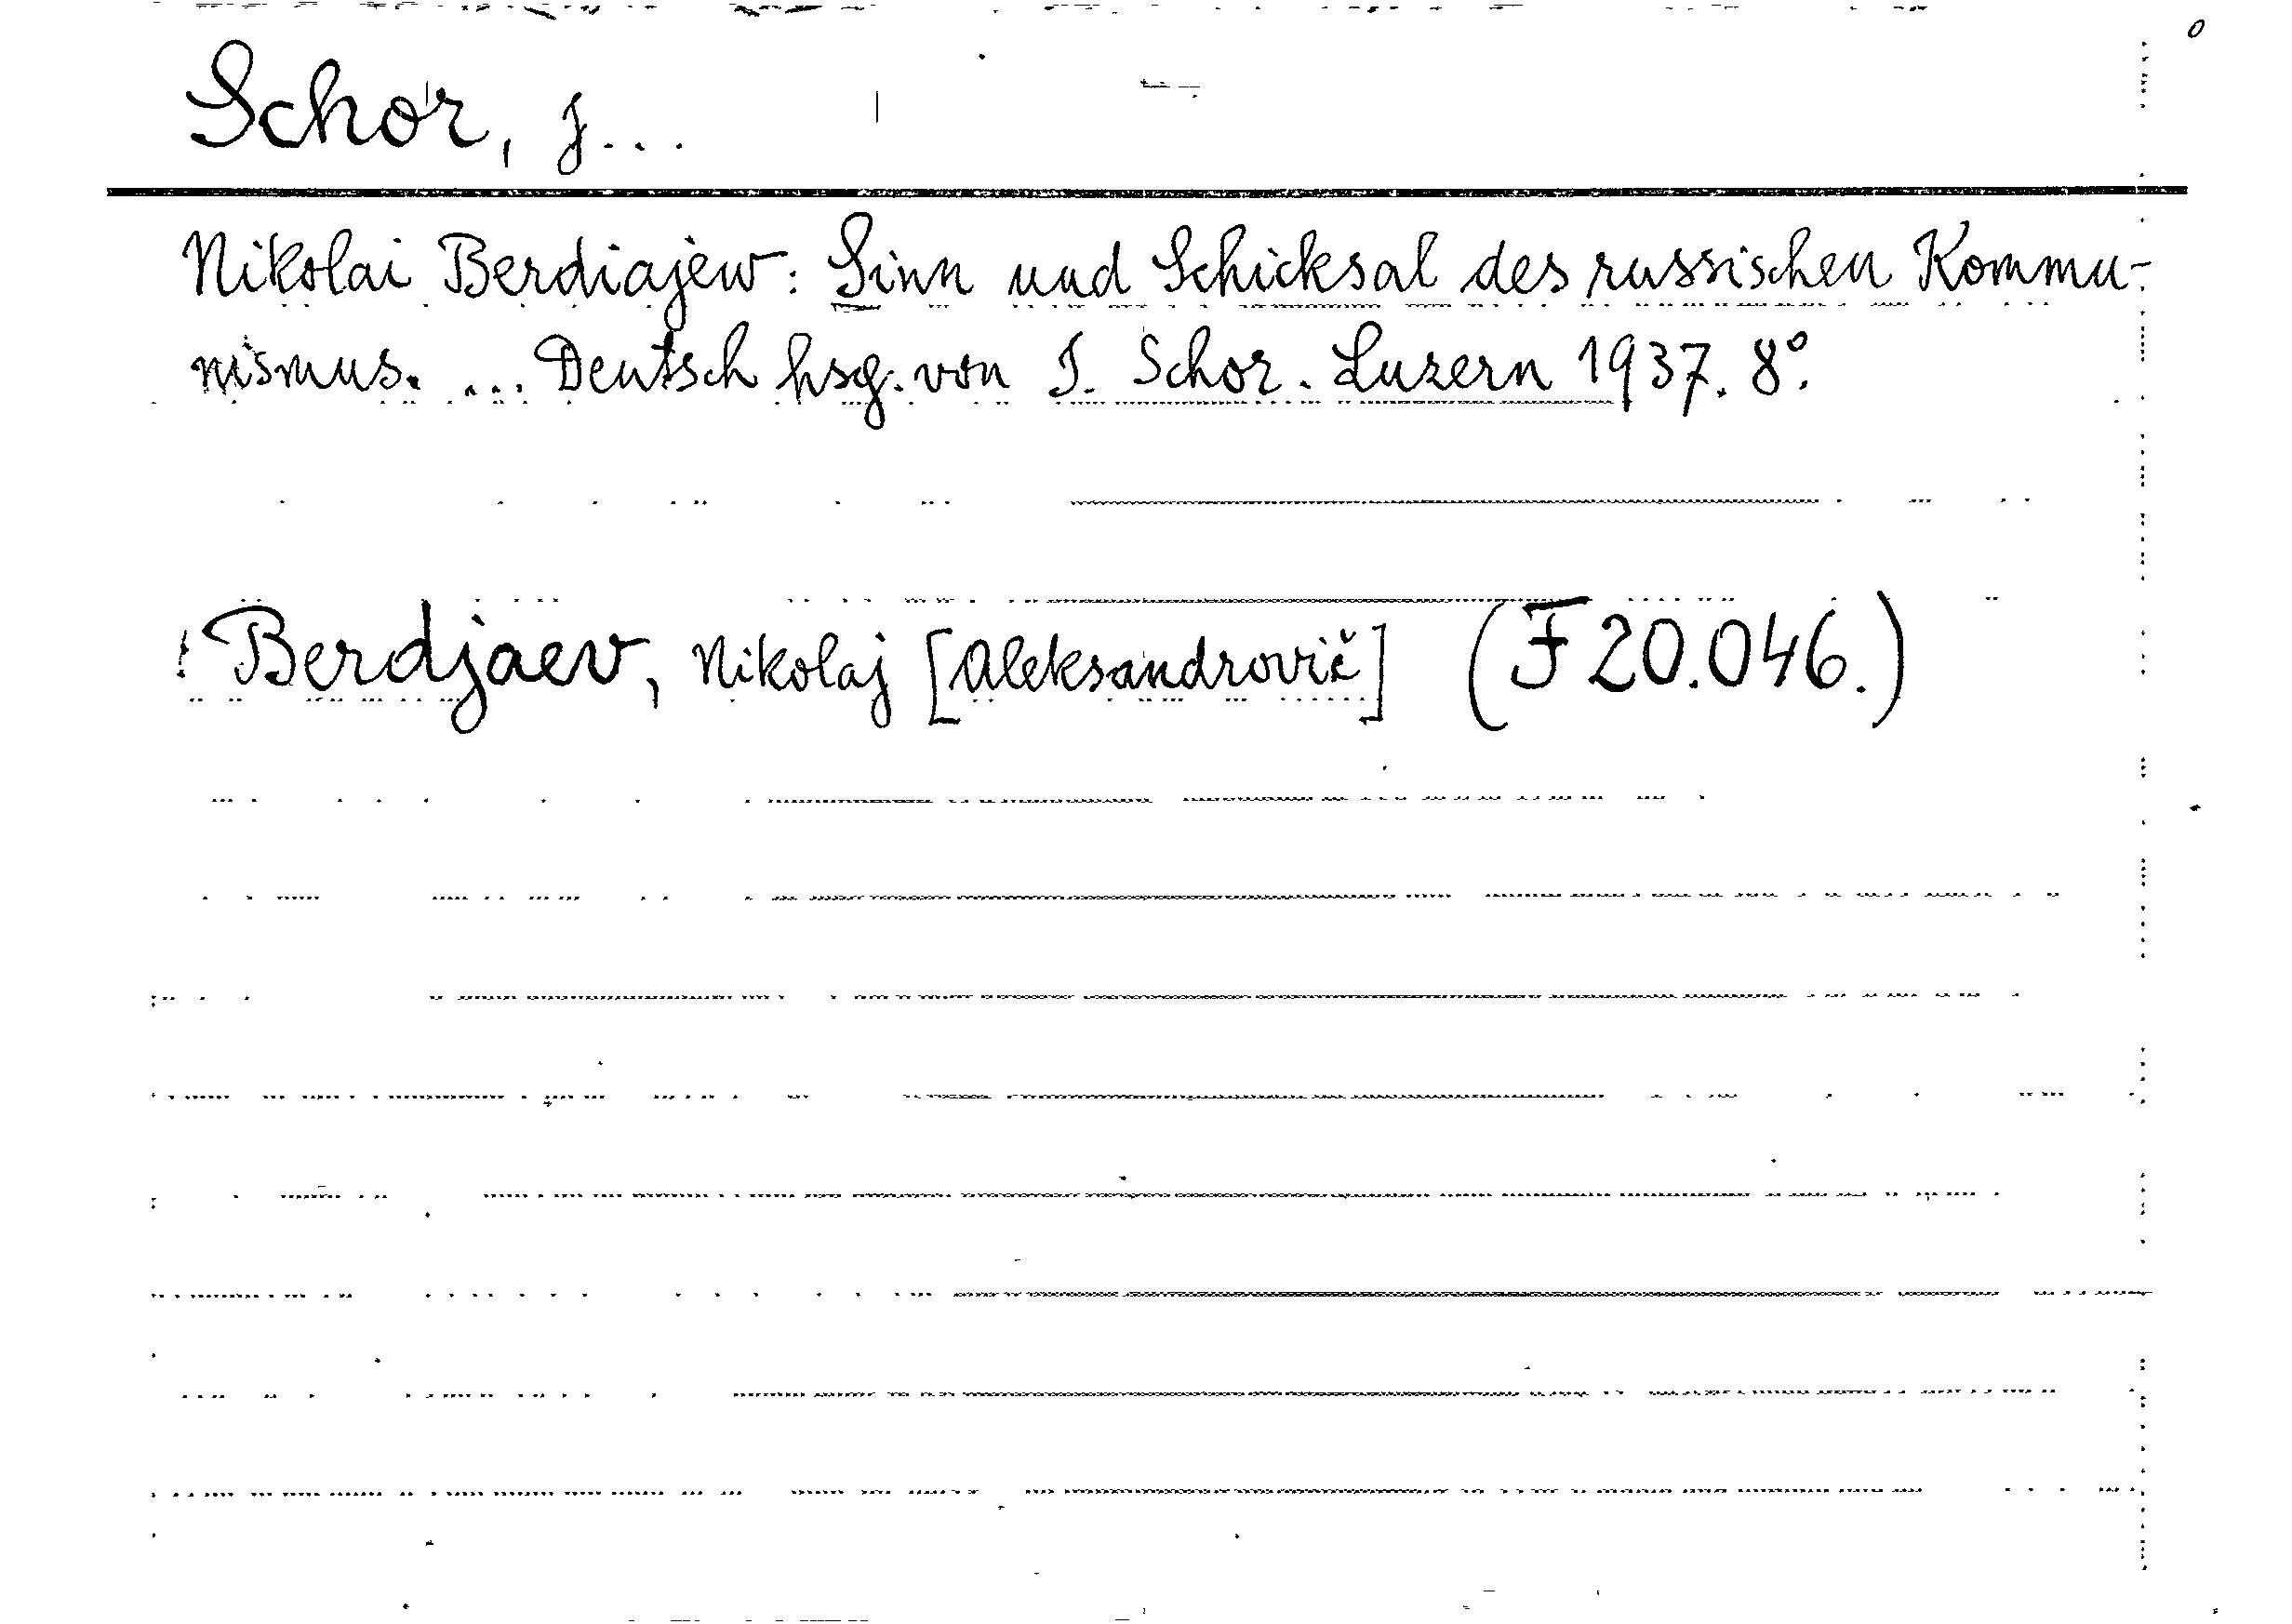 Schor, J...
Nikolai Berdiajew: Sinn und Schicksal des russischen Kommu-
nismus. ... Deutsch hsg. von I. Schor. Luzern 1937. 8°.
! Berdjaev, Nikolaj [Aleksandrovič] (F 20.046.)